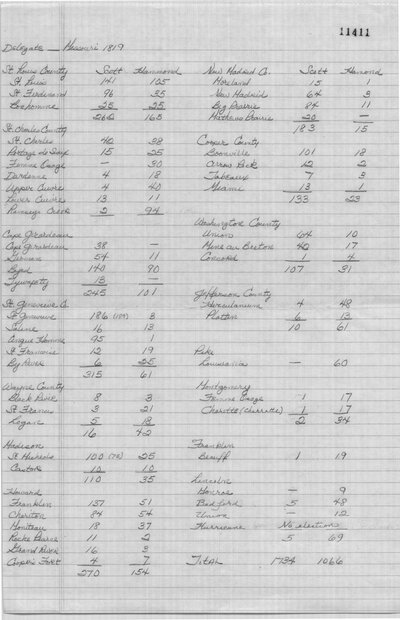 11411
Delegate — Missouri 1819
St. Louis County Scott Hammond
St. Louis 141 105
St. Ferdinand 96 35
Bonhomme 25 25
262 165
St. Charles County
St. Charles 40 38
Portage de Sioux 15 25
Femme Osage — 30
Dardenne 4 18
Upper Cuivre 4 40
Lower Cuivre 13 11
Ramseys Creek 2 94
Cape Girardeau
Cape Girardeau 38 —
German 54 11
Byrd 140 90
Tywappity 13 —
245 101
St. Genevieve Co.
St. Genevieve 186 8
Saline 16 13
Cinque Homme 95 1
St. Francois 12 19
Big River 6 25
315 61
Wayne County
Black River 8 3
St. Francis 3 21
Logans 5 18
16 42
Madison
St. Michaels 100 (78) 25
Castor 10 10
110 35
Howard
Franklin 137 51
Chariton 84 54
Moniteau 18 37
Roche Perce 11 2
Grand River 16 3
Coopers Fort 4 7
270 154
New Madrid Co. Scott Hamond
Moreland 15 1
New Madrid 64 3
Big Prairie 84 11
Mathews Prairie 20 —
183 15
Cooper County
Boonville 101 18
Arrow Rock 12 2
Tabeaux 7 3
Miami 13 1
133 23
Washington County
Union 64 10
Mine au Breton 40 17
Concord 1 4
107 31
Jefferson County
Herculaneum 4 48
Plattin 6 13
10 61
Pike
Louisiana — 60
Montgomery
Femme Osage 1 17
Charette (Charrette) 1 17
2 34
Franklin
Beouff 1 19
Lincoln
Monroe — 9
Bedford 5 48
Union — 12
Hurricane No election
5 69
Total 1734 1066